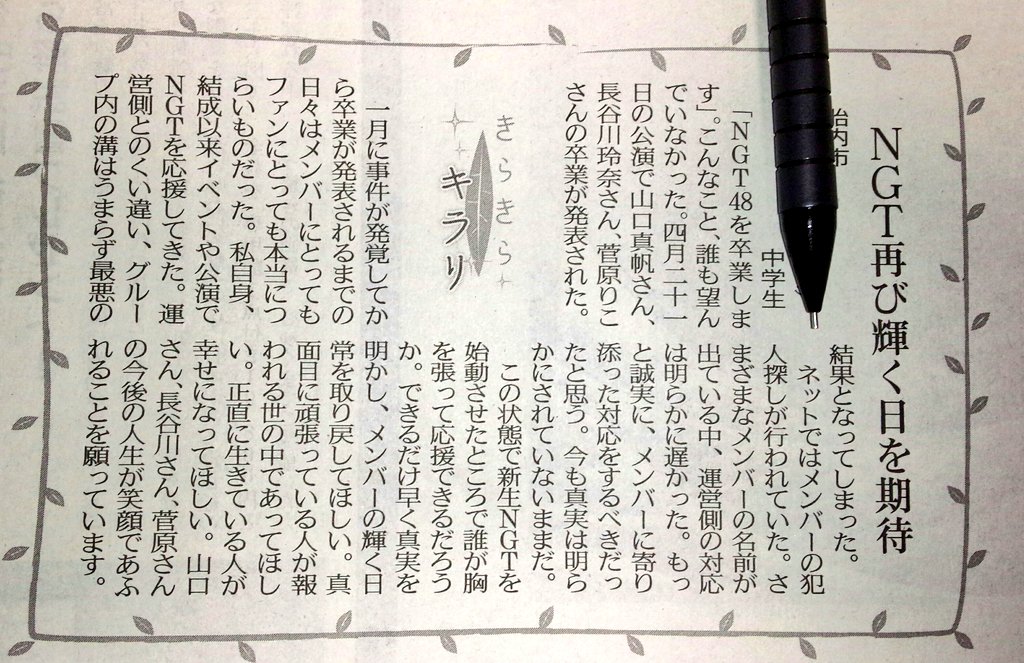 NGT再び輝く日を期待
胎内市
中学生
「NGT48を卒業しま
す」。こんなこと、誰も望ん
でいなかった。四月二十一
日の公演で山口真帆さん、
長谷川玲奈さん、菅原りこ
さんの卒業が発表された。
きらきら
キラリ
一月に事件が発覚してか
ら卒業が発表されるまでの
日々はメンバーにとっても
ファンにとっても本当につ
らいものだった。私自身、
結成以来イベントや公演で
NGTを応援してきた。運
営側とのくい違い、グルー
プ内の溝はうまらず最悪の
結果となってしまった。
ネットではメンバーの犯
人探しが行われていた。さ
まざまなメンバーの名前が
出ている中、運営側の対応
は明らかに遅かった。もっ
と誠実に、メンバーに寄り
添った対応をするべきだっ
たと思う。今も真実は明ら
かにされていないままだ。
この状態で新生NGTを
始動させたところで誰が胸
を張って応援できるだろう
か。できるだけ早く真実を
明かし、メンバーの輝く日
常を取り戻してほしい。真
面目に頑張っている人が報
われる世の中であってほし
い。正直に生きている人が
幸せになってほしい。山口
さん、長谷川さん、菅原さん
の今後の人生が笑顔であふ
れることを願っています。